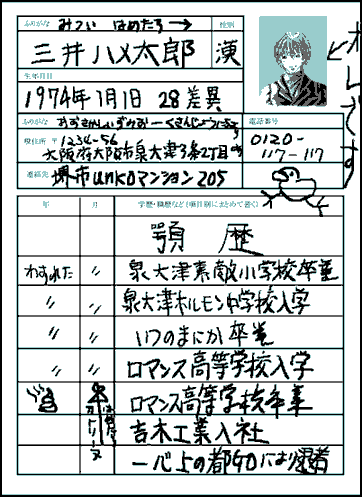 ふりがな みつい はめたろ→ 性別
三井ハメ太郎 漢
オレさまです
生年月日
1974年1月1日 28差異
ふりがな
電話番号
現住所 〒1234-56 0120-117-117
大阪府大阪市泉大津3条2丁目
連絡先 堺市unkoマンション205
年 月 学歴・職歴など(項目別にまとめて書く)
顎歴
わすれた 〃 泉大津素敵小学校卒業
〃 〃 泉大津ホルモン中学校入学
〃 〃 いつのまにか卒業
〃 〃 ロマンス高等学校入学
ロマンス高等学校卒業
吉木工業入社
一心上の都合により退者